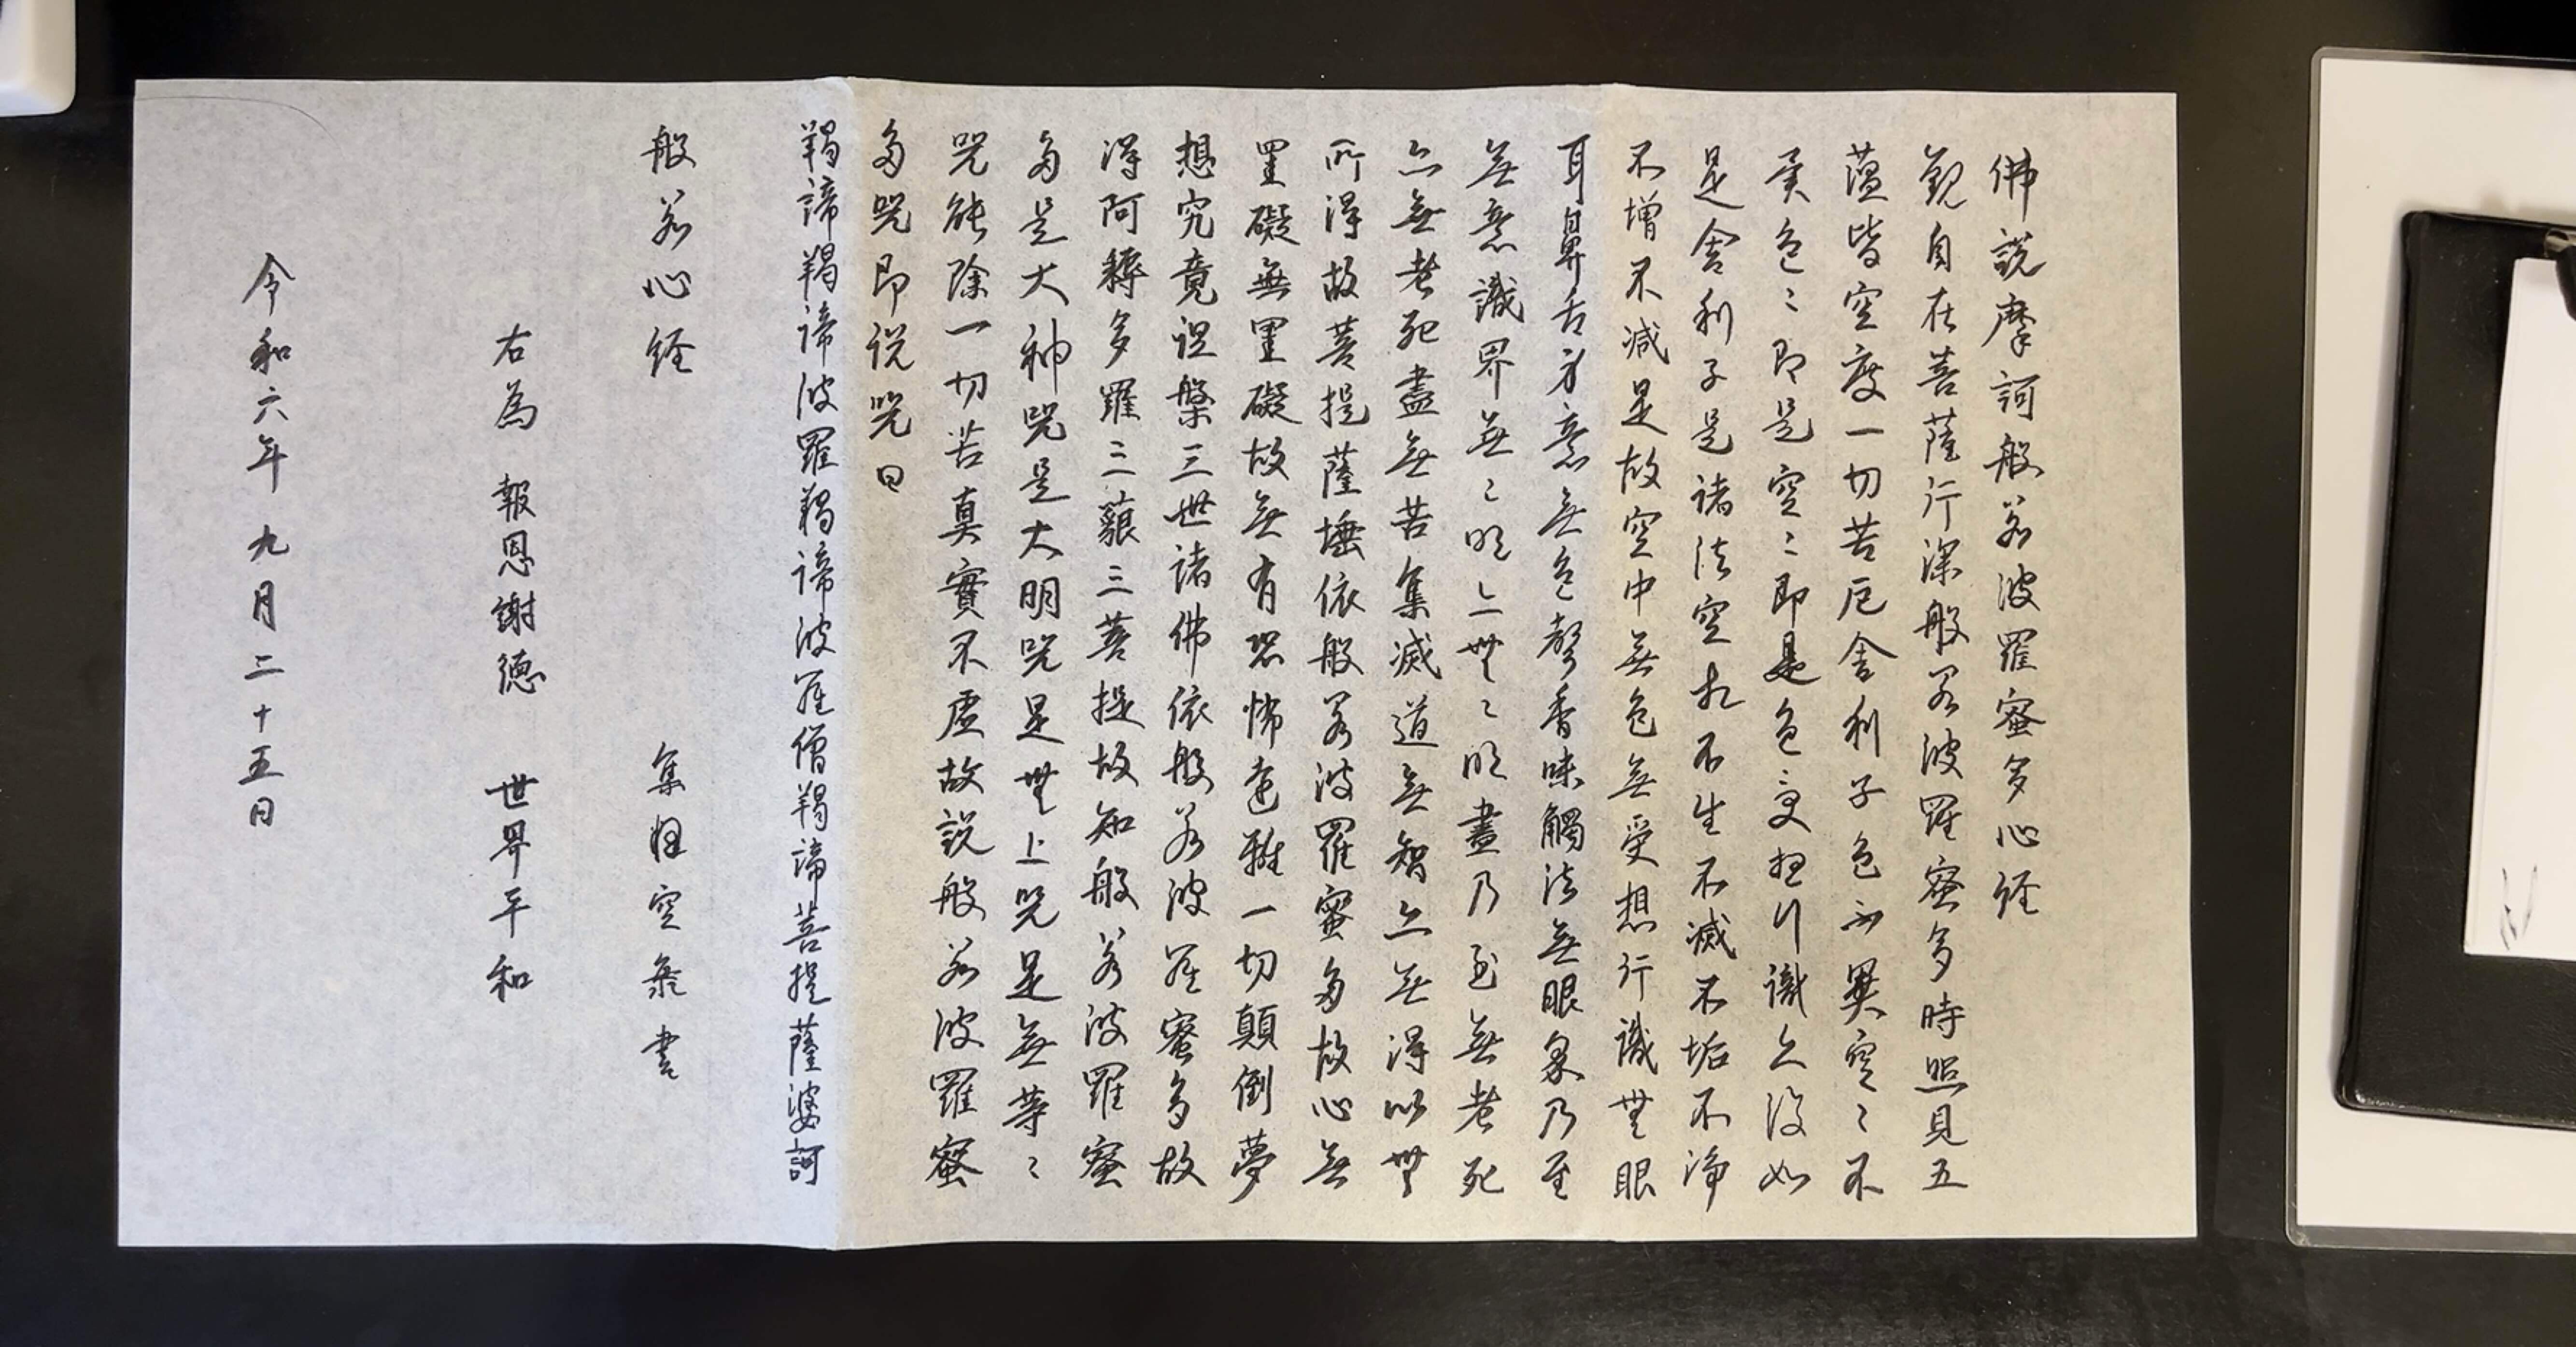 佛説摩訶般若波羅蜜多心経
観自在菩薩行深般若波羅蜜多時照見五
蘊皆空度一切苦厄舎利子色不異空〻不
異色〻即是空〻即是色受想行識亦復如
是舎利子是諸法空相不生不滅不垢不浄
不増不減是故空中無色無受想行識無眼
耳鼻舌身意無色聲香味觸法無眼界乃至
無意識界無〻明亦無〻明盡乃至無老死
亦無老死盡無苦集滅道無智亦無得以無
所得故菩提薩埵依般若波羅蜜多故心無
罣礙無罣礙故無有恐怖遠離一切顛倒夢
想究竟涅槃三世諸佛依般若波羅蜜多故
得阿耨多羅三藐三菩提故知般若波羅蜜
多是大神咒是大明咒是無上咒是無等〻
咒能除一切苦真實不虚故説般若波羅蜜
多咒即説咒曰
羯諦羯諦波羅羯諦波羅僧羯諦菩提薩婆訶
般若心経
集 空 書
右為 報恩謝徳 世界平和
令和六年 九月二十五日